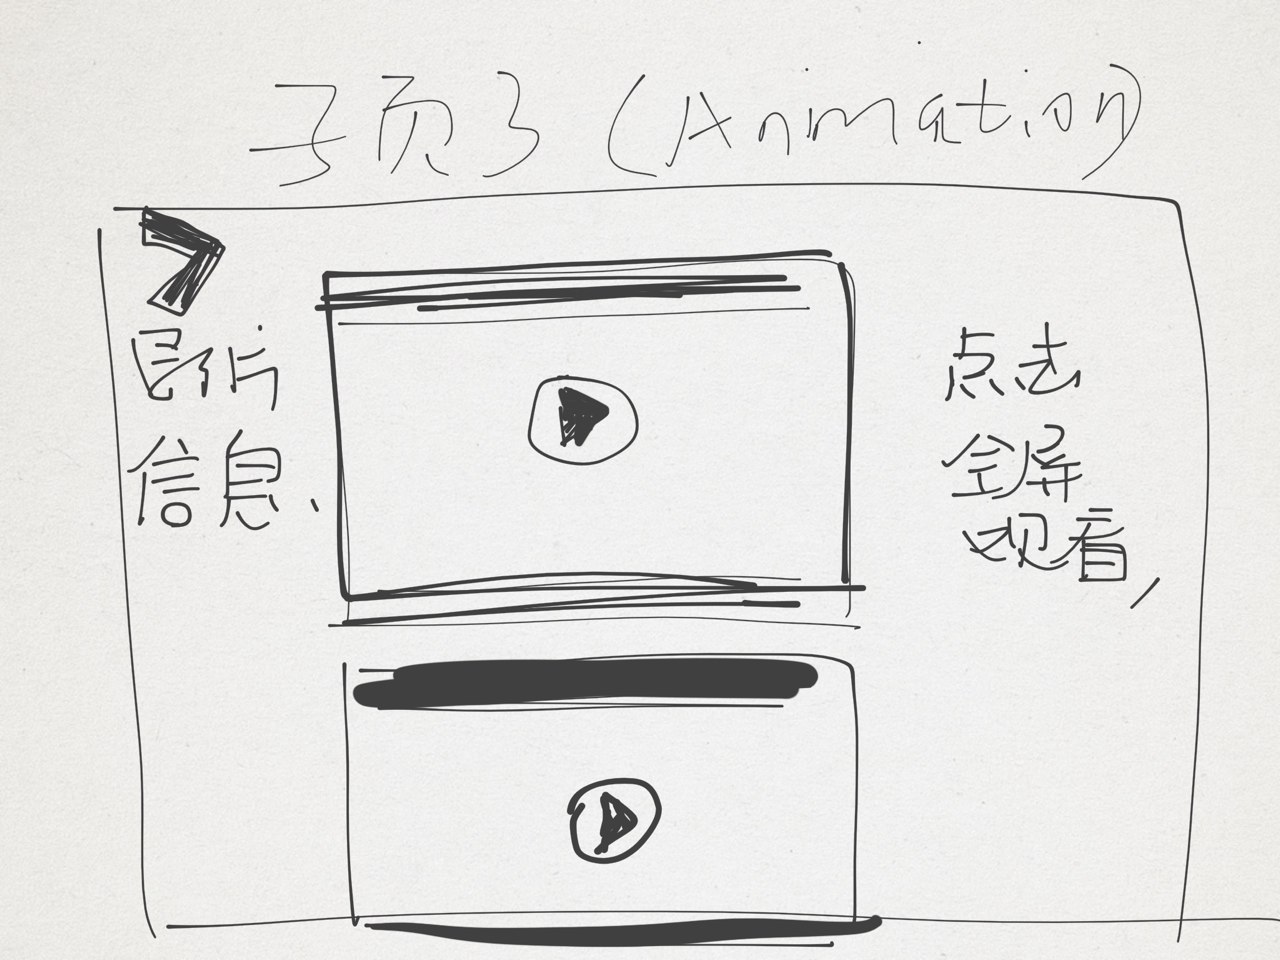 子页3 (Animation)
影片
信息、
点击
全屏
观看,